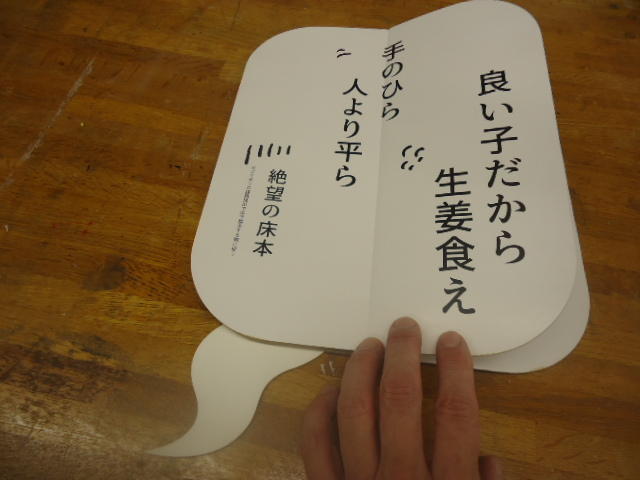 良い子だから
生姜食え
手のひら
人より平ら
絶望の床本